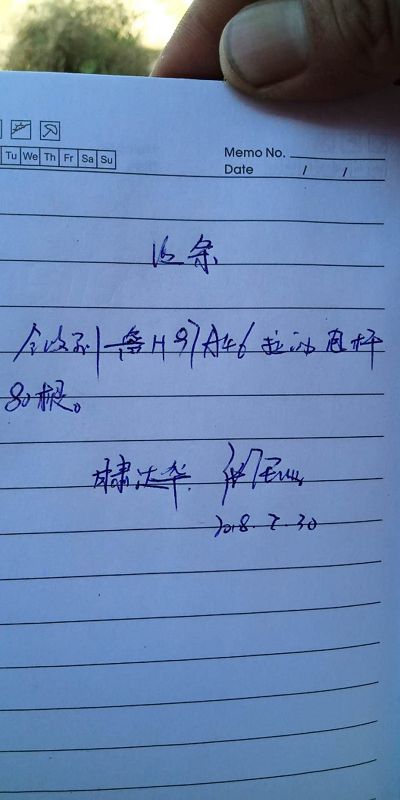 Tu We Th Fr Sa Su
Memo No.
Date / /
收条
今收到鲁H97A46拉油电杆
80根。
2018.7.30